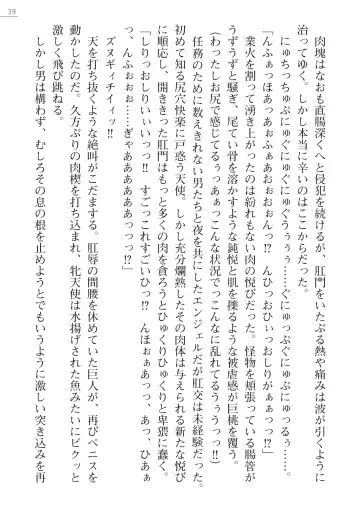 39
肉塊はなおも直腸深くへと侵犯を続けるが、肛門をいたぶる熱や痛みは波が引くように
治ってゆく。しかし本当に辛いのはここからだった。
「んふぁっほぁあっっおふぁああぉおぉぉんっっ!? んひょおひぃっおひりがぁぁっっ!?」
にゅちっちゅぷにゅぐにゅぐにゅぐうぅぅぅ……ぐにゅっぷぐにゅぷにゅっぷるぅ……。
業火を割って湧き上がったのは紛れもない肉の悦びだった。怪物を頬張っている腸管が
うずうずと騒ぎ、尾てい骨を溶かすような鈍悦と肌を撫るような被虐感が巨桃を覆う。
(わったしお尻で感じてるぅっあぁっこんな状況でっこんなに乱れてるぅぅっっ!)
任務のために数えきれない男たちと夜を共にしたエンジェルだが肛交は未経験だった。
初めて知る尻穴快楽に戸惑う天使。しかし充分爛熟したその肉体は与えられる新たな悦び
に順応し、開ききった肛門はもっと多くの肉を貪ろうとひゅくりひゅくりと卑猥に蠢く。
「しりっおしりぃいいっっ! すごっこれすごいひっ!? んほぉぉぁあっっ、あっ、ひあぁ
っっ、んふぉぉぉ……ぎゃああああああっっっ!?」
ズヌギィチイィッ!!
天を打ち抜くような絶叫がこだまする。肛辱の間腰を休めていた巨人が、再びペニスを
動かしたのだ。久方ぶりの肉楔を打ち込まれ、牝天使は水揚げされた魚みたいにビクッと
激しく飛び跳ねる。
しかし男は構わず、むしろその息の根を止めようとでもいうように激しい突き込みを再